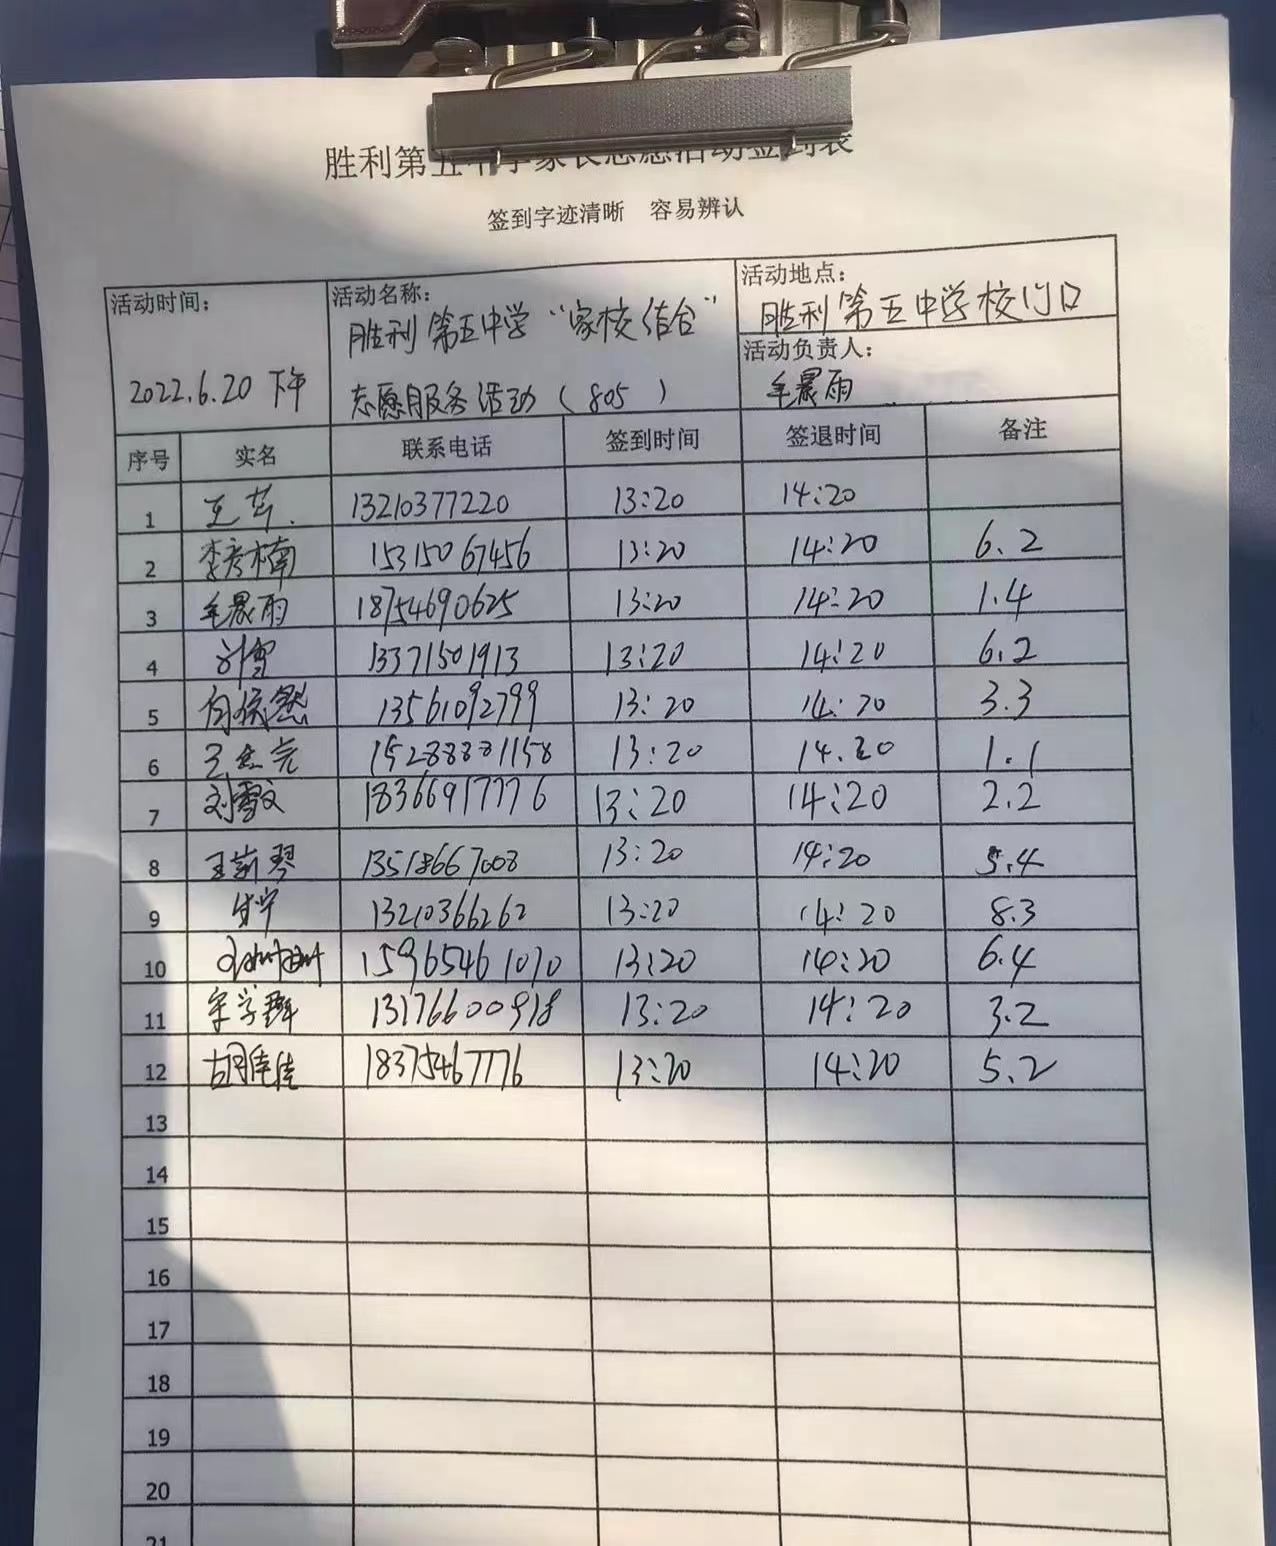 胜利第五中学家长志愿活动签到表
签到字迹清晰 容易辨认
活动时间：
2022.6.20 下午
活动名称：
胜利第五中学“家校结合”
志愿服务活动（805 ）
活动地点：
胜利第五中学校门口
活动负责人：
毛晨雨
序号 实名 联系电话 签到时间 签退时间 备注
1 13210377220 13:20 14:20
2 李彦楠 15315067456 13:20 14:20 6.2
3 毛晨雨 18754690625 13:20 14:20 1.4
4 刘雪 13371501913 13:20 14:20 6.2
5 13561092799 13:20 14:20 3.3
6 15288881158 13:20 14.20 1.1
7 刘雪文 18366917776 13:20 14:20 2.2
8 王莉琴 13518667008 13:20 14:20 5.4
9 13210366262 13:20 14:20 8.3
10 15965461070 13:20 14:20 6.4
11 13176600918 13:20 14:20 3.2
12 胡佳佳 18375467776 13:20 14:20 5.2
13
14
15
16
17
18
19
20
21